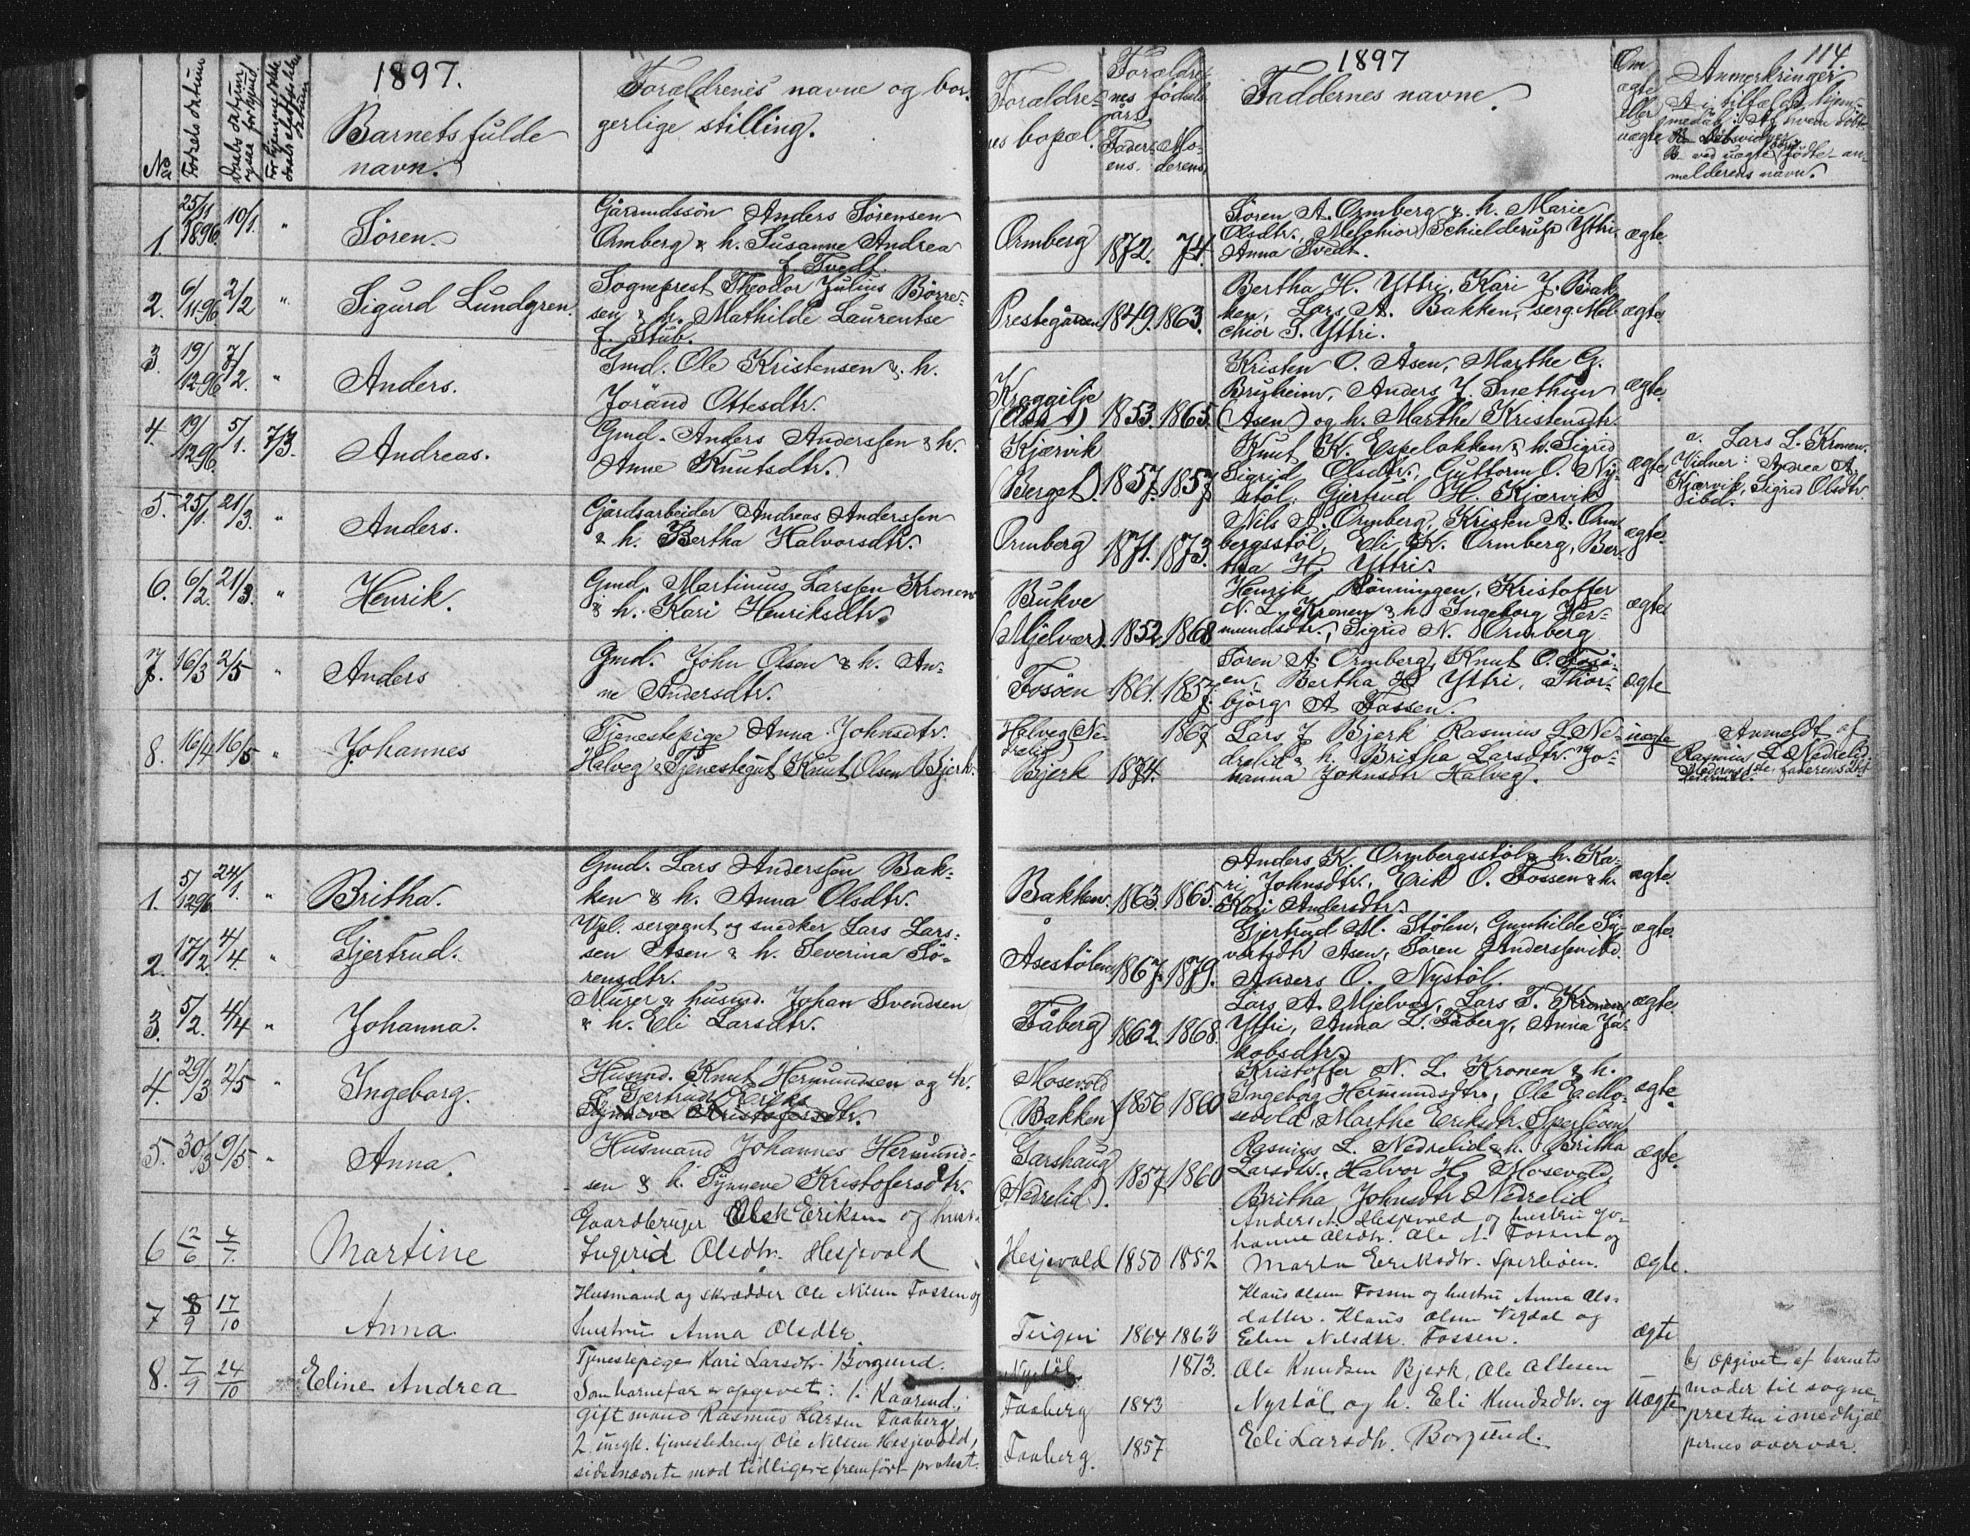 1897.
1897
114.
No
Fødsels datum
Barnets fulde
navn.
Forældrenes navne og bor-
gerlige stilling.
Forældre-
nes bopæl.
Forældre-
nes fødsels
års
Fader-
ens.
Mo-
derens.
Faddernes navne.
Om
ægte
eller
uægte
Anmerkninger.
A i tilfælde hjem-
medåb: Af hvem døbt
B ved uægte fødte an-
melderens navn.
1. 25/11 1896. 10/1. " Søren.
Gårmandssøn Anders Sørensen
Ormberg & h. Susanne Andrea
f. Tvedt.
Ormberg 1872. 74.
Søren A. Ormberg & h. Marie
Olsdtr., Melchior Schielderup Yttri,
Anna Tvedt.
ægte
2. 6/11 96 2/2 " Sigurd Lundgren.
Sogneprest Theodor Julius Børre-
sen & h. Mathilde Laurentse
f. Stub.
Prestegården 1849. 1863.
Bertha H. Yttri, Kari J. Bak-
ken, Lars A. Bakken, serg. Mel-
chior S. Yttri.
ægte.
3. 19/12 96 7/2. " Anders.
Gmd. Ole Kristensen & h.
Jörånd Ottesdtr.
Kroggilje
(Åsen) 1853. 1865.
Kristen O. Åsen, Marthe G.
Bruheim, Anders J. Snethun
(Åsen) og h. Marthe Kristensdtr.
ægte.
4. 19/12 96 5/1. 7/3. Andreas.
Gmd. Anders Anderssen & h.
Anne Knutsdtr.
Kjærvik
(Berget). 1857. 1857
Knut K. Espelakken & h. Sigrid
Sigrid Olsdtr., Guttorm O. Ny-
støl, Gjertrud H. Kjærvik
ægte.
a. Lars L. Kronen.
Vidner: Andrea A.
Kjærvik, Sigrid Olsdtr.
ibd.
5. 25/1. 21/3. " Anders.
Gårdsarbeider Andreas Anderssen
& h. Bertha Halvorsdtr.
Ormberg 1871. 1873.
Nils A. Ormberg, Kristen A. Orm-
bergsstøl, Eli K. Ormberg, Ber-
tha H. Yttri.
ægte.
6. 6/2. 21/3. " Henrik.
Gmd. Martinus Larssen Kronen
& h. Kari Henriksdtr.
Bukve
(Mjelvær). 1852. 1868
Henrik Rønningen, Kristoffer
N. L. Kronen & h. Ingeborg Her-
mundsdtr., Sigrid N. Ormberg
ægte
7. 16/3 2/5 " Anders
Gmd. John Olsen & h. An-
ne Andersdtr.
Fosøen 1861. 1857.
Søren A. Ormberg, Knut O. Fosø-
en, Bertha H Yttri, Thor-
björg A Fossen.
ægte
8. 16/4 16/5 " Johannes
Tjenestepige Anna Johnsdtr.
Halveg & Tjenestegut Knut Olsen Bjerk.
Halveg (Ne-
drelid
Bjerk 1874. 1867
Lars J Bjerk Rasmus L. Ne-
drelid & h. Britha Larsdtr. Jo-
hanna Johnsdtr Halveg.
uægte
Anmeldt af
Rasmus L. Nedrelid
1. 5/12 96. 24/1. " Britha.
Gmd. Lars Anderssen Bak-
ken & h. Anna Olsdtr.
Bakken. 1863. 1865.
Anders K. Ormbergsstøl & h. Ka-
ri Johnsdtr., Erik O. Fossen & h.
Kari Andersdtr.
ægte.
2. 17/2 4/4. " Gjertrud.
Vpl. sergeant og snedker Lars Lars-
sen Åsen & h. Severina Sø-
rensdtr.
Åsestølen 1867. 1879.
Gjertrud M. Stølen, Gunhilde Sy-
vertsdtr Åsen, Søren Anderssen ibd.
Anders O. Nystøl.
ægte.
3. 5/2. 4/4 " Johanna.
Murer & husmd. Johan Svendsen
& h. Eli Larsdtr.
Fåberg 1862. 1868.
Lars A. Mjelvær, Lars T. Kronen,
Yttri, Anna L. Fåberg, Anna Ja-
kobsdtr.
ægte.
4. 29/3 2/5 " Ingeborg.
Husmd. Knut Hermundsen og h.
Gjertrud Eriks
Synneve Kristofersdtr.
Mosevold
(Bakken) 1856 1860
Kristoffer N. L. Kronen & h.
Ingeborg Hermundsdtr., Ole E. Mo-
sevold, Marthe Eriksdtr. Sperleøen
ægte
5. 30/3 9/5 " Anna.
Husmand Johannes Hermund-
sen & h. Synneve Kristofersdtr.
Garshaug
(Nedrelid.) 1857 1860
Rasmus L. Nedrelid & h. Britha
Larsdtr., Halvor H. Mosevold,
Britha Johnsdtr Nedrelid
ægte.
6 12/6 4/7. Martine
Gaardbruger Ole Eriksen og hustru
Ingerid Olsdtr. Hesjevold
Hesjevold 1850 1852
Anders N. Hesjevold og hustru Jo-
hanne Olsdtr. Ole N. Fossen og
Marta Eriksdtr. Sperleøen.
ægte.
7 8/9 17/10 Anna
Husmand og skrædder Ole Nilsen Fossen og
hustru Anna Olsdtr.
Teigen 1864 1863
Klaus Olsen Fossen og hustru Anna Ols-
datter. Klaus Olsen Vigdal og
Eden Nilsdtr. Fossen.
ægte
8. 7/9 24/10 Eline Andrea
Tjenestepige Kari Larsdtr. Borgund.
Som barnefar er opgivet: 1. Kaarmd.,
gift mand Rasmus Larsen Faaberg,
2. ungk. tjenestedreng Ole Nilsen Hesjevold,
sidstnævnte mod tidligere fremført protest.
Nystøl
Faaberg 1843
Faaberg. 1857
1873.
Ole Knudsen Bjerk, Ole Ottesen
Nystøl og h. Eli Knudsdtr. og
Eli Larsdtr. Borgund.
Uægte
b) Opgivet af barnets
moder til sogne-
presten i medhjæl-
pernes overvær.